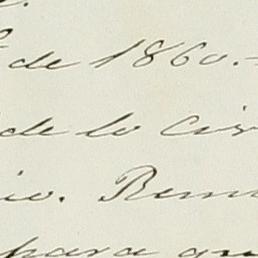 de 1860.-
de lo Civ
io. Rem
para que